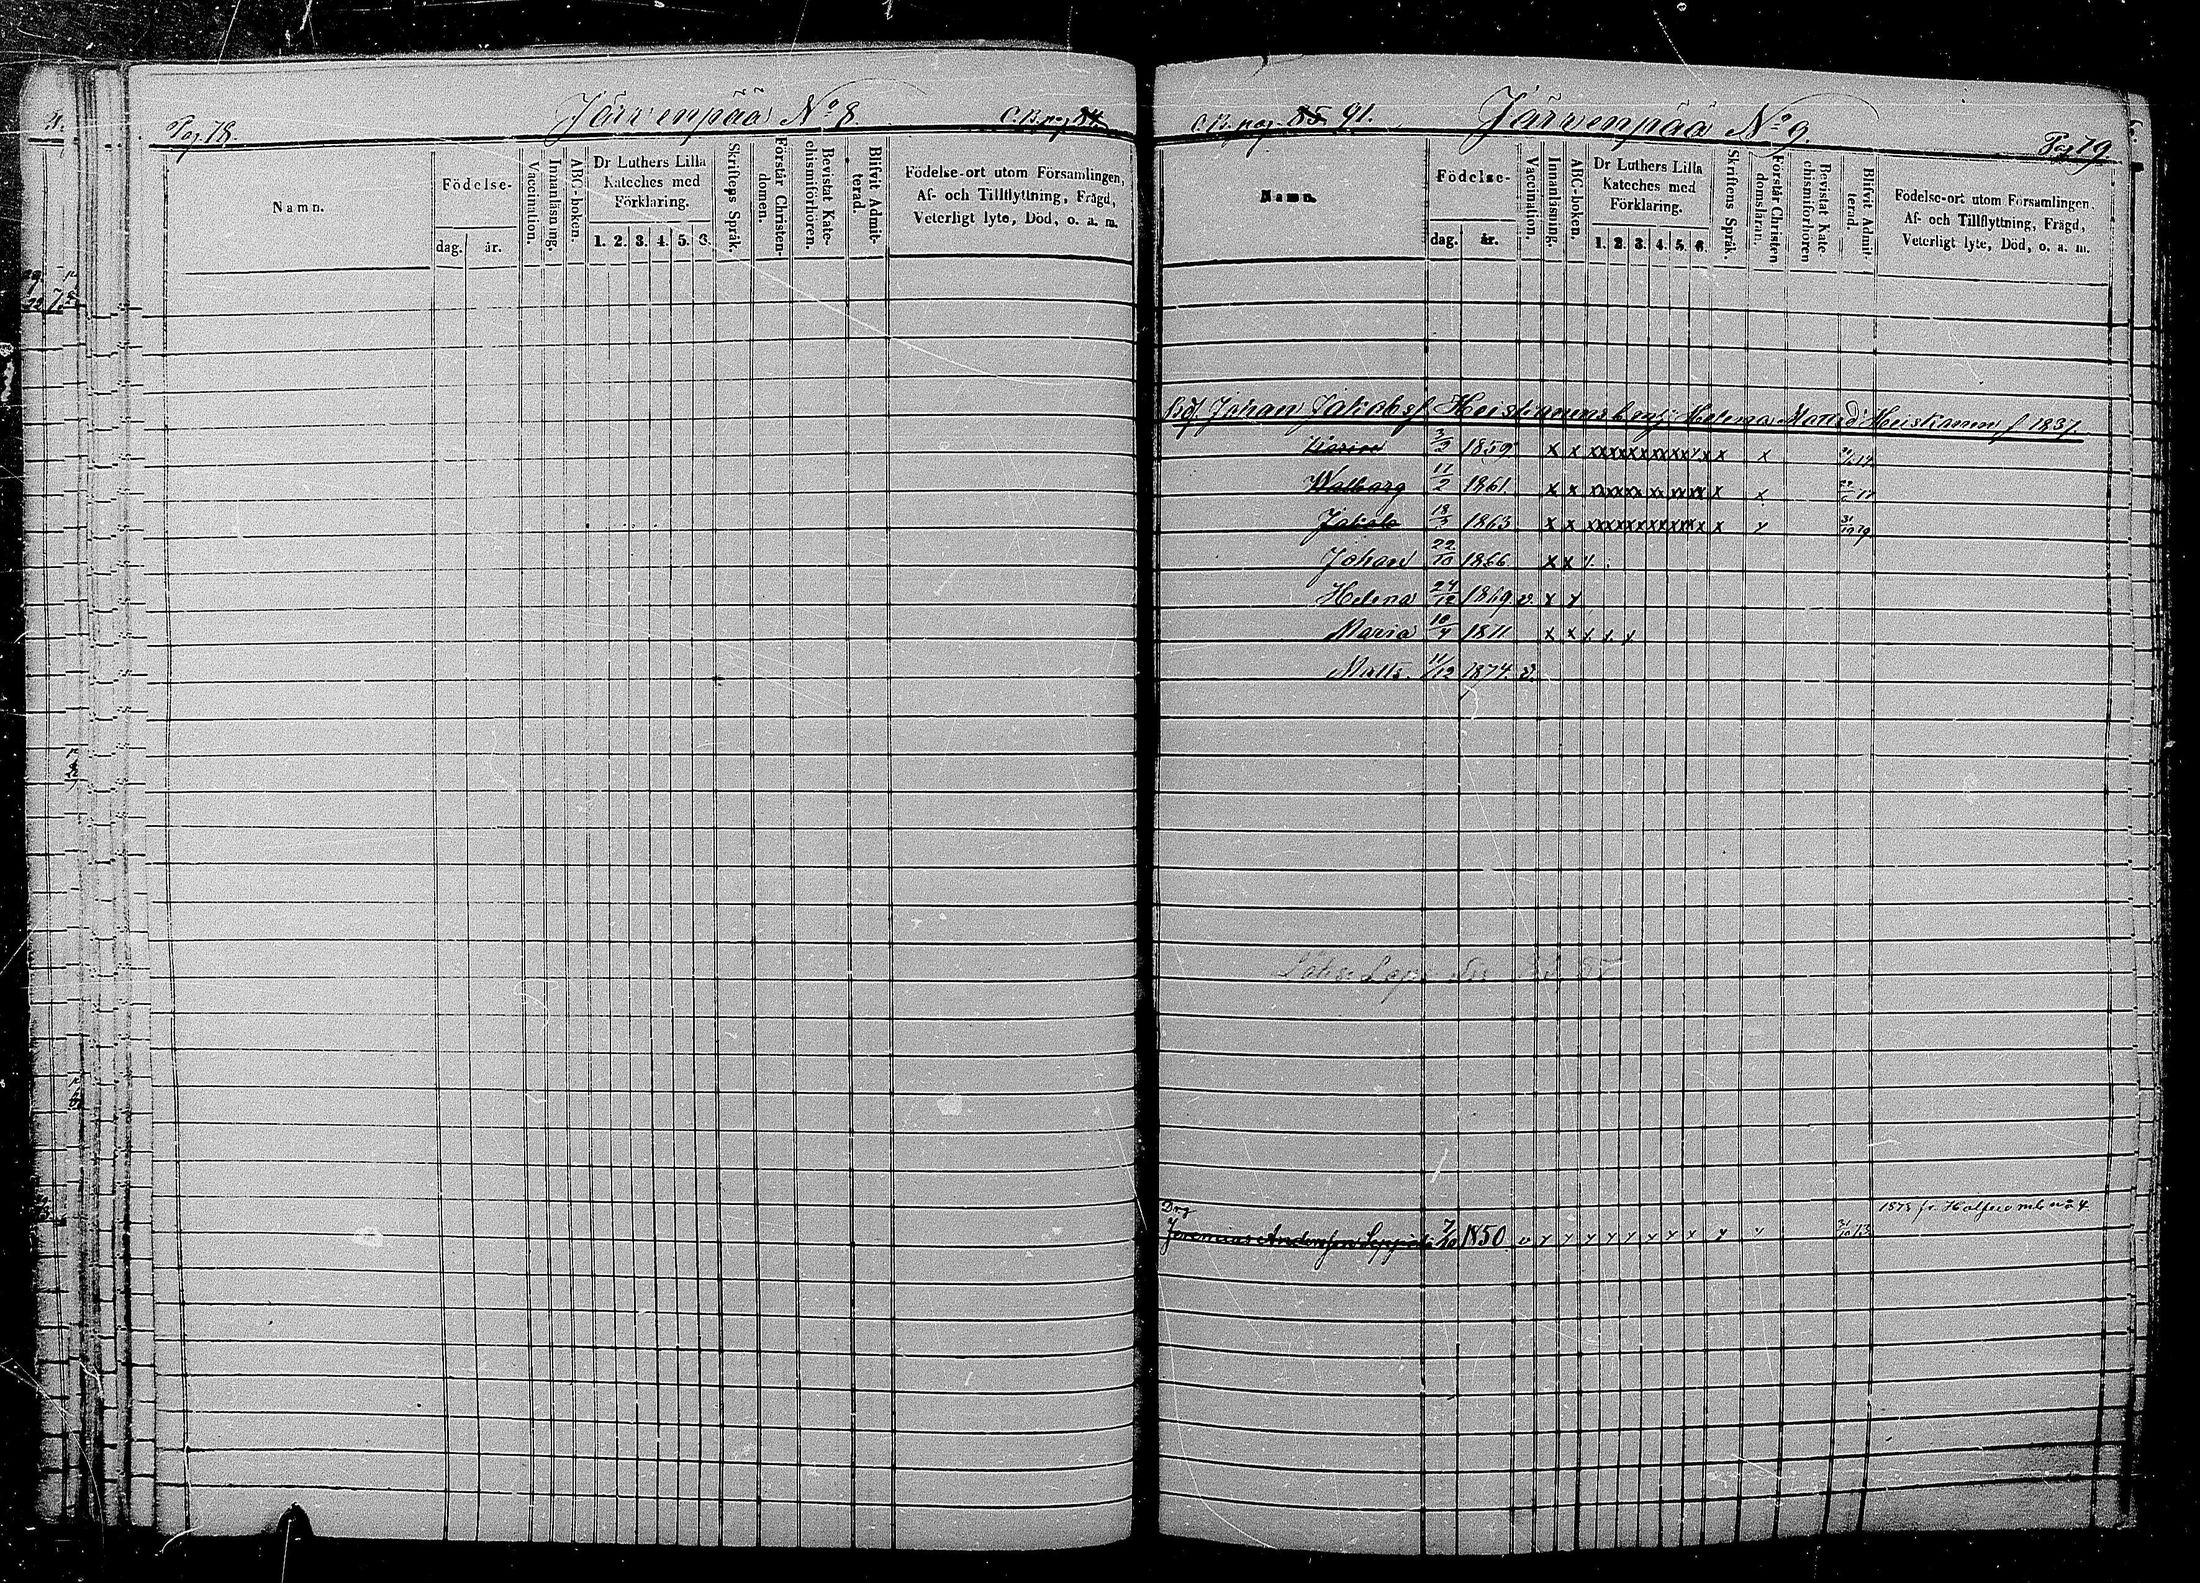 Pag 78.
Järvenpää No 8.
C.B. pag. 84.
Namn.
Födelse-
dag. år.
Vaccination.
Innanläsning.
ABC-boken.
Dr Luthers Lilla Kateches med Förklaring.
1. 2. 3. 4. 5. 6.
Skriftens Språk.
Förstår Christen-domen.
Bevistat Kate-chismiförhören.
Blifvit Admit-terad.
Födelse-ort utom Församlingen,
Af- och Tillflyttning, Frägd,
Veterligt lyte, Död, o. a. m.
C.B. pag. 85 91.
Järvenpää No 9.
Pag 79
Namn.
Födelse-
dag. år.
Vaccination.
Innanläsning.
ABC-boken.
Dr Luthers Lilla
Kateches med
Förklaring.
1. 2. 3. 4. 5. 6.
Skriftens Språk.
Förstår Christen domsläran.
Bevistat Kate chismiförhören
Blifvit Admit terad.
Födelse-ort utom Församlingen,
Af- och Tillflyttning, Frägd,
Veterligt lyte, Död, o. a. m.
Johan Jakobsf. Heiskanens Helena Mattsd. Heiskanen f 1837.
3/3 1859 x x xxxxxxxxxxx x x
Walborg 11/2 1861. x x x x
Jakob 18/3 1863 x x x x 31/10 79
Johan 22/10 1866. x x
Helena 24/12 1869. v. x x
Maria 10/4 1871 x x
Matts. 11/12 1874. v.
Drg
1873 fr. Holfwo
Jeremias Andersson 1850 v